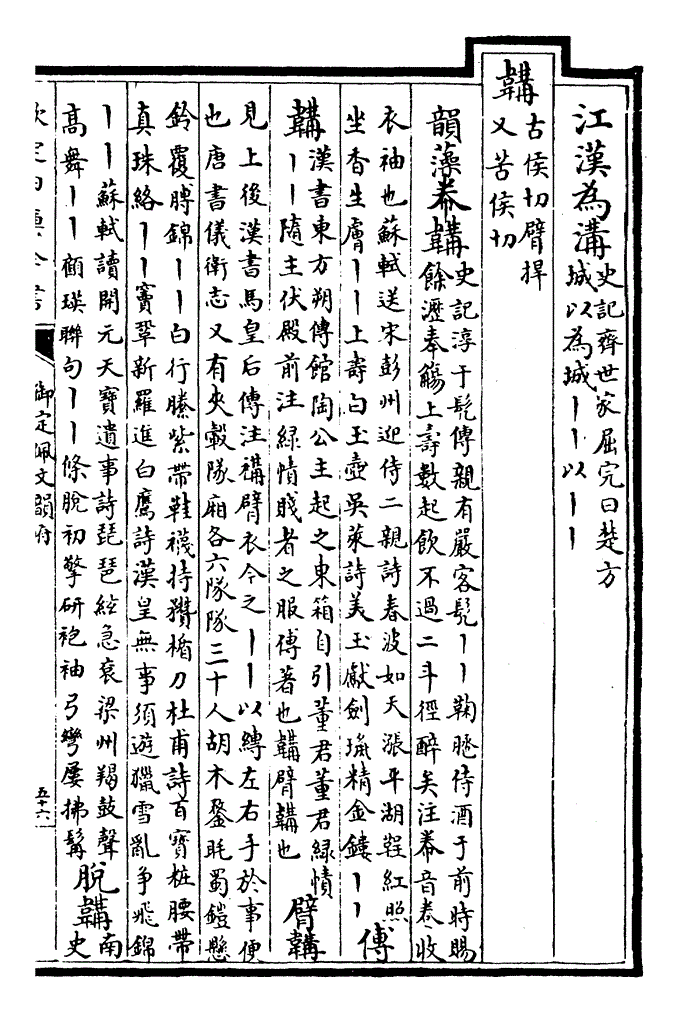 江漢為溝史記齊世家屈完曰楚方
城以為城丨丨以丨丨
韝古侯切臂捍
又苦侯切
韻藻
帣韝史記淳于髠傳親有嚴客髠丨丨鞠䠆侍酒于前時賜
餘瀝奉觴上壽數起飲不過二斗徑醉矣注帣音卷收
衣袖也蘇軾送宋彭州迎侍二親詩春波如天漲平湖鞓紅照
坐香生膚丨丨上壽白玉壺吳萊詩美玉獻劍珌精金鏤丨丨傅
韝漢書東方朔傳館陶公主起之東箱自引董君董君綠幘
丨丨隨主伏殿前注綠幘賤者之服傅著也韝臂韝也臂韝
見上後漢書馬皇后傳注褠臂衣今之丨丨以縛左右手於事便
也唐書儀衛志又有夾轂隊廂各六隊隊三十人胡木鍪毦蜀鎧懸
鈴覆膊錦丨丨白行縢紫帶鞋襪持䂎楯刀杜甫詩百寶粧腰帶
真珠絡丨丨竇鞏新羅進白鷹詩漢皇無事須遊獵雪亂爭飛錦
丨丨蘇軾讀開元天寶遺事詩琵琶絃急衮梁州羯鼓聲
高舞丨丨顧瑛聯句丨丨條脫初擎研袍袖弓彎屢拂髯脫韝南
史
欽定四庫全書
御定佩文韻府
五十六